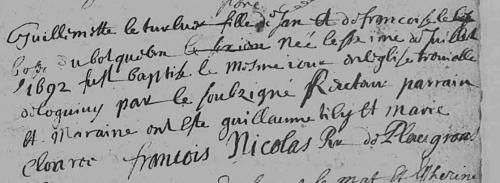 Guillemette le turluer fille de Jan et de francoise le
née le seiziesme de Juillet
1692 fust baptisée le mesme jour en leglise treuialle
de loquiuy par le soubzigné Recteur parrain
et Maraine ont este guillaume tily et marie
cloarec francois Nicolas Rr de Plougras